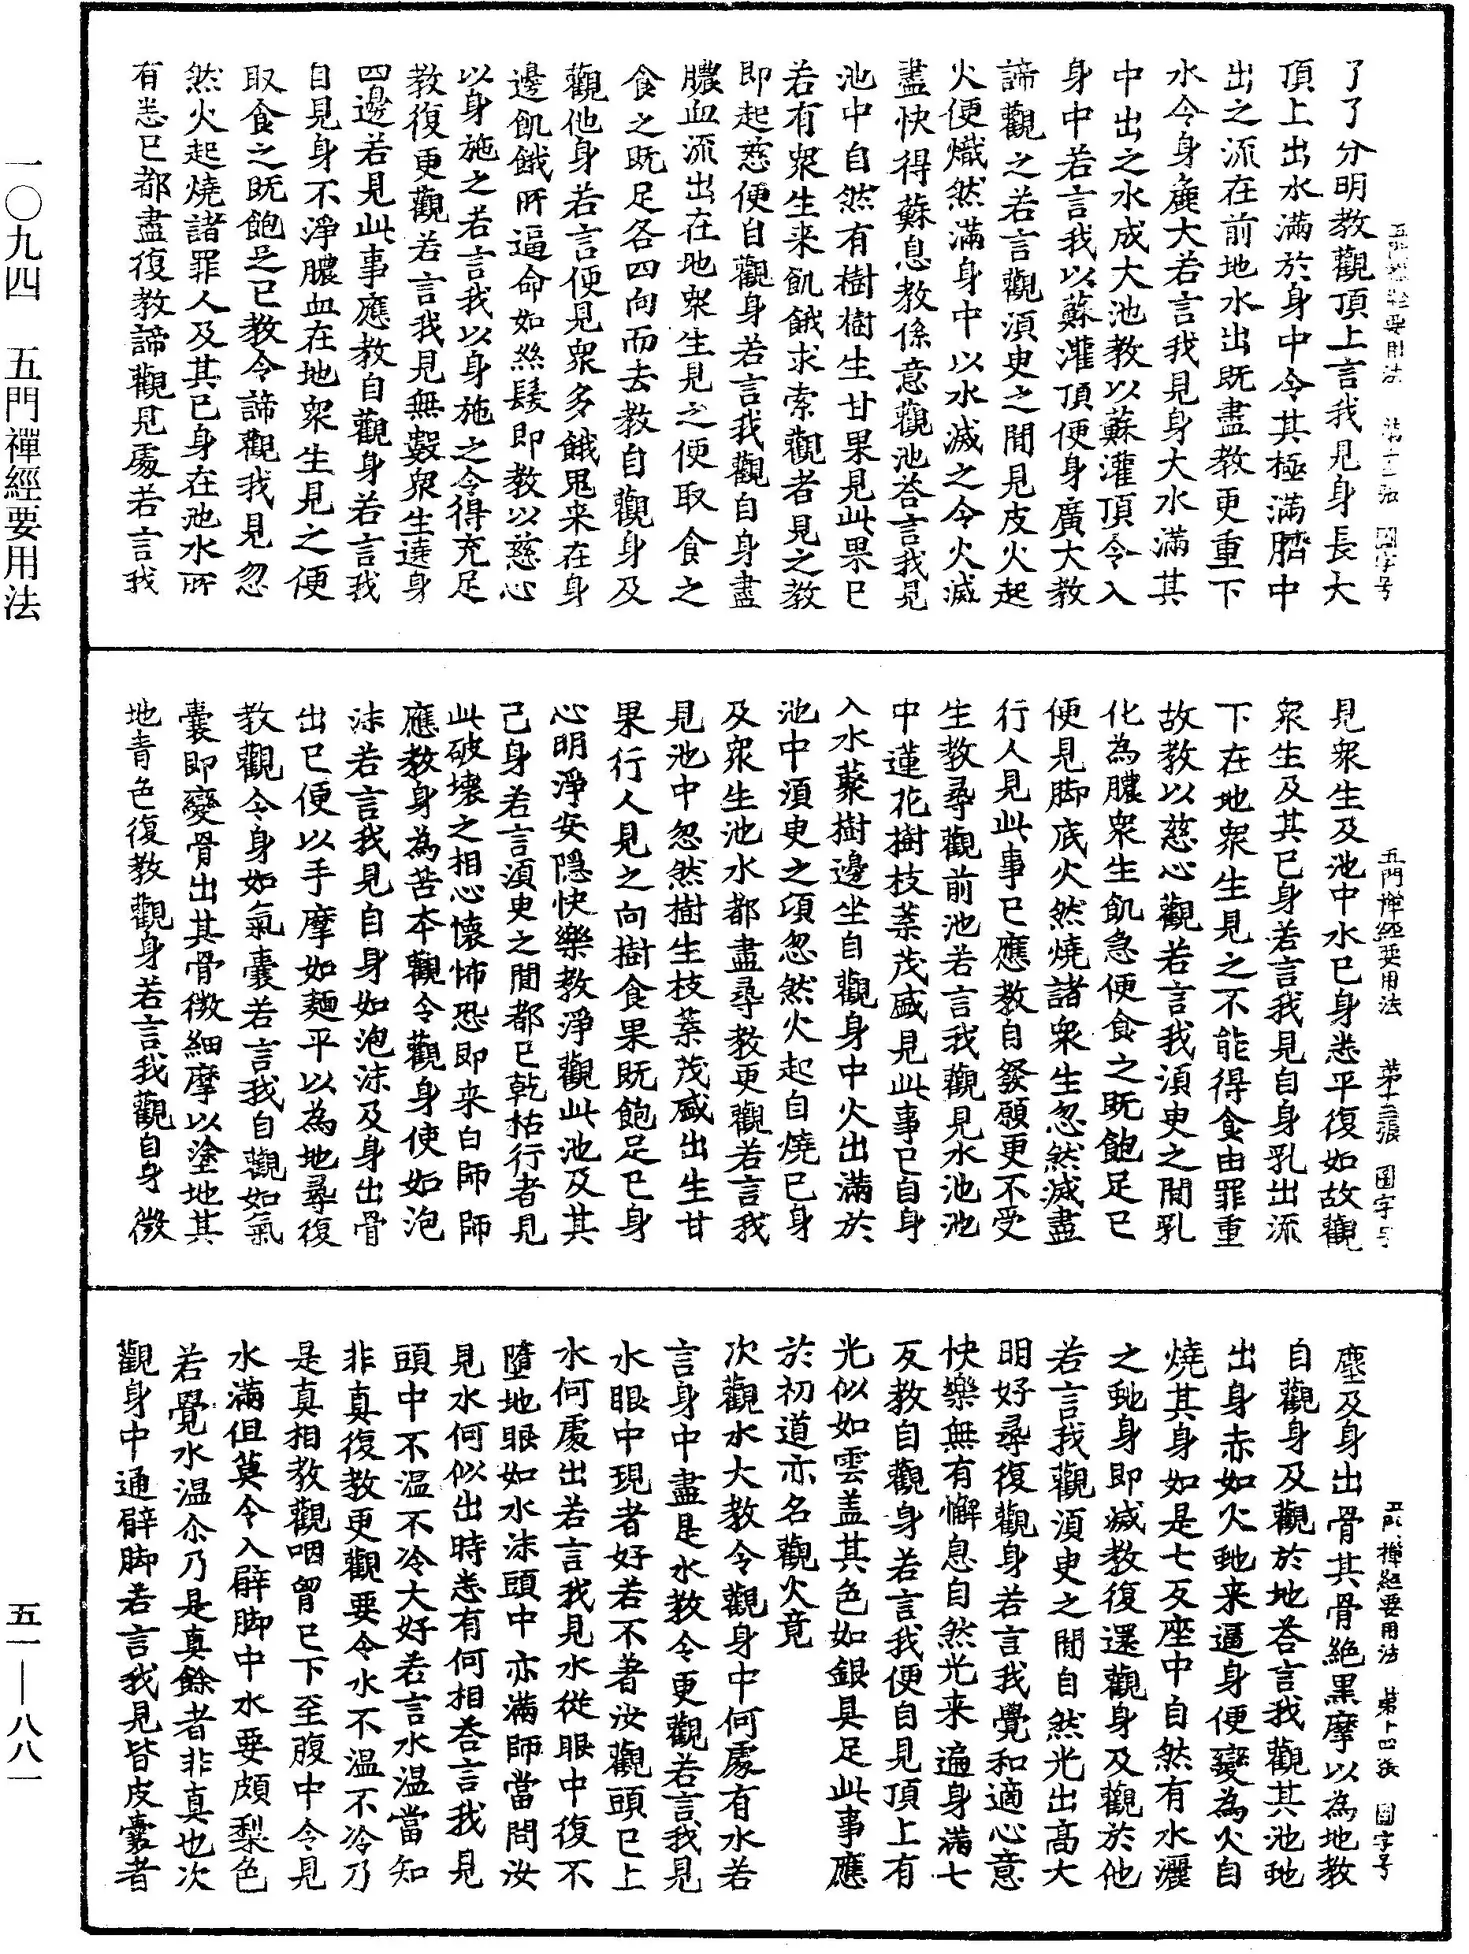 一〇九四　五門禪經要用法
五一—八八一
了了分明教觀頂上言我見身長大
頂上出水満於身中令其極満臍中
出之流在前地水出既盡教更重下
水令身麁大若言我見身大水滿其
中出之水成大池教以蘇灌頂令入
身中若言我以蘇灌頂便身廣大教
諦觀之若言觀湏㬰之間見皮火起
火便熾然滿身中以水滅之令火滅
盡快得蘇息教係意觀池荅言我見
池中自然有樹樹生甘果見此果已
若有衆生来飢餓求索觀者見之教
即起慈便自觀身若言我觀自身盡
膿血流出在地衆生見之便取食之
食之既足各四向而去教自觀身及
觀他身若言便見衆多餓鬼来在身
邊飢餓所逼命如絲髮即教以慈心
以身施之若言我以身施之令得充足
教復更觀若言我見無數衆生遶身
四邊若見此事應教自觀身若言我
自見身不淨膿血在地衆生見之便
取食之既飽足已教令諦觀我見忽
然火起燒諸罪人及其已身在池水所
有悉已都盡復教諦觀見處若言我
五門禪經要用法　第十三張　圖字号
見衆生及池中水已身悉平復如故觀
衆生及其已身若言我見自身乳出流
下在地衆生見之不能得食由罪重
故教以慈心觀若言我湏㬰之間乳
化為膿衆生飢急便食之既飽足已
便見脚底火然燒諸衆生忽然滅盡
行人見此事已應教自發願更不受
生教尋觀前池若言我觀見水池池
中蓮花樹枝葉茂盛見此事已自身
入水藂樹邊坐自觀身中火出滿於
池中湏㬰之頃忽然火起自燒已身
及衆生池水都盡尋教更觀若言我
見池中忽然樹生枝葉茂盛出生甘
果行人見之向樹食果既飽足已身
心明淨安隱快樂教淨觀此池及其
己身若言湏㬰之間都已乾枯行者見
此破壞之相心懷怖恐即来白師師
應教身為苦本觀令觀身使如泡
沫若言我見自身如泡沫及身出骨
出已便以手摩如麵平以為地尋復
教觀令身如氣囊若言我自觀如氣
囊即變骨出其骨微細摩以塗地其
地青色復教觀身若言我觀自身微
五門禪經要用法　第十四張　圖字号
塵及身出骨其骨絶黒摩以為地教
自觀身及觀於地荅言我觀其池虵
出身赤如火虵来逼身便變為火自
燒其身如是七反座中自然有水灑
之虵身即滅教復還觀身及觀於他
若言我觀湏㬰之間自然光出高大
明好尋復觀身若言我覺和適心意
快樂無有懈息自然光来遍身滿七
反教自觀身若言我便自見頂上有
光似如雲盖其色如銀具足此事應
於初道亦名觀火竟
次觀水大教令觀身中何處有水若
言身中盡是水教令更觀若言我見
水眼中現者好若不著汝觀頭已上
水何處出若言我見水從眼中復不
墮地眼如水沫頭中亦滿師當問汝
見水何似出時悉有何相荅言我見
頭中不温不冷大好若言水温當知
非真復教更觀要令水不温不冷乃
是真相教觀咽胷已下至腹中令見
水滿但莫令入臂脚中水要頗梨色
若覺水温尒乃是真餘者非真也次
觀身中通臂脚若言我見皆皮囊者